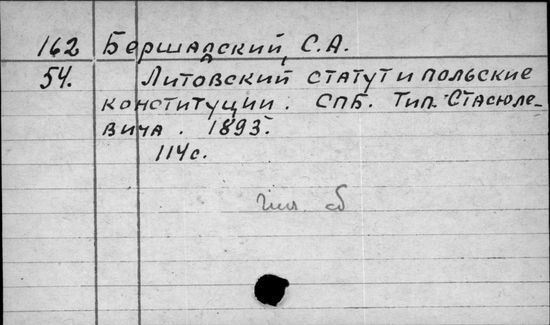 162 Бершадский, С.А.
54. Литовский статут и польские
конституции. СПБ. Тип. Стасюле-
вича. 1893.
114с.